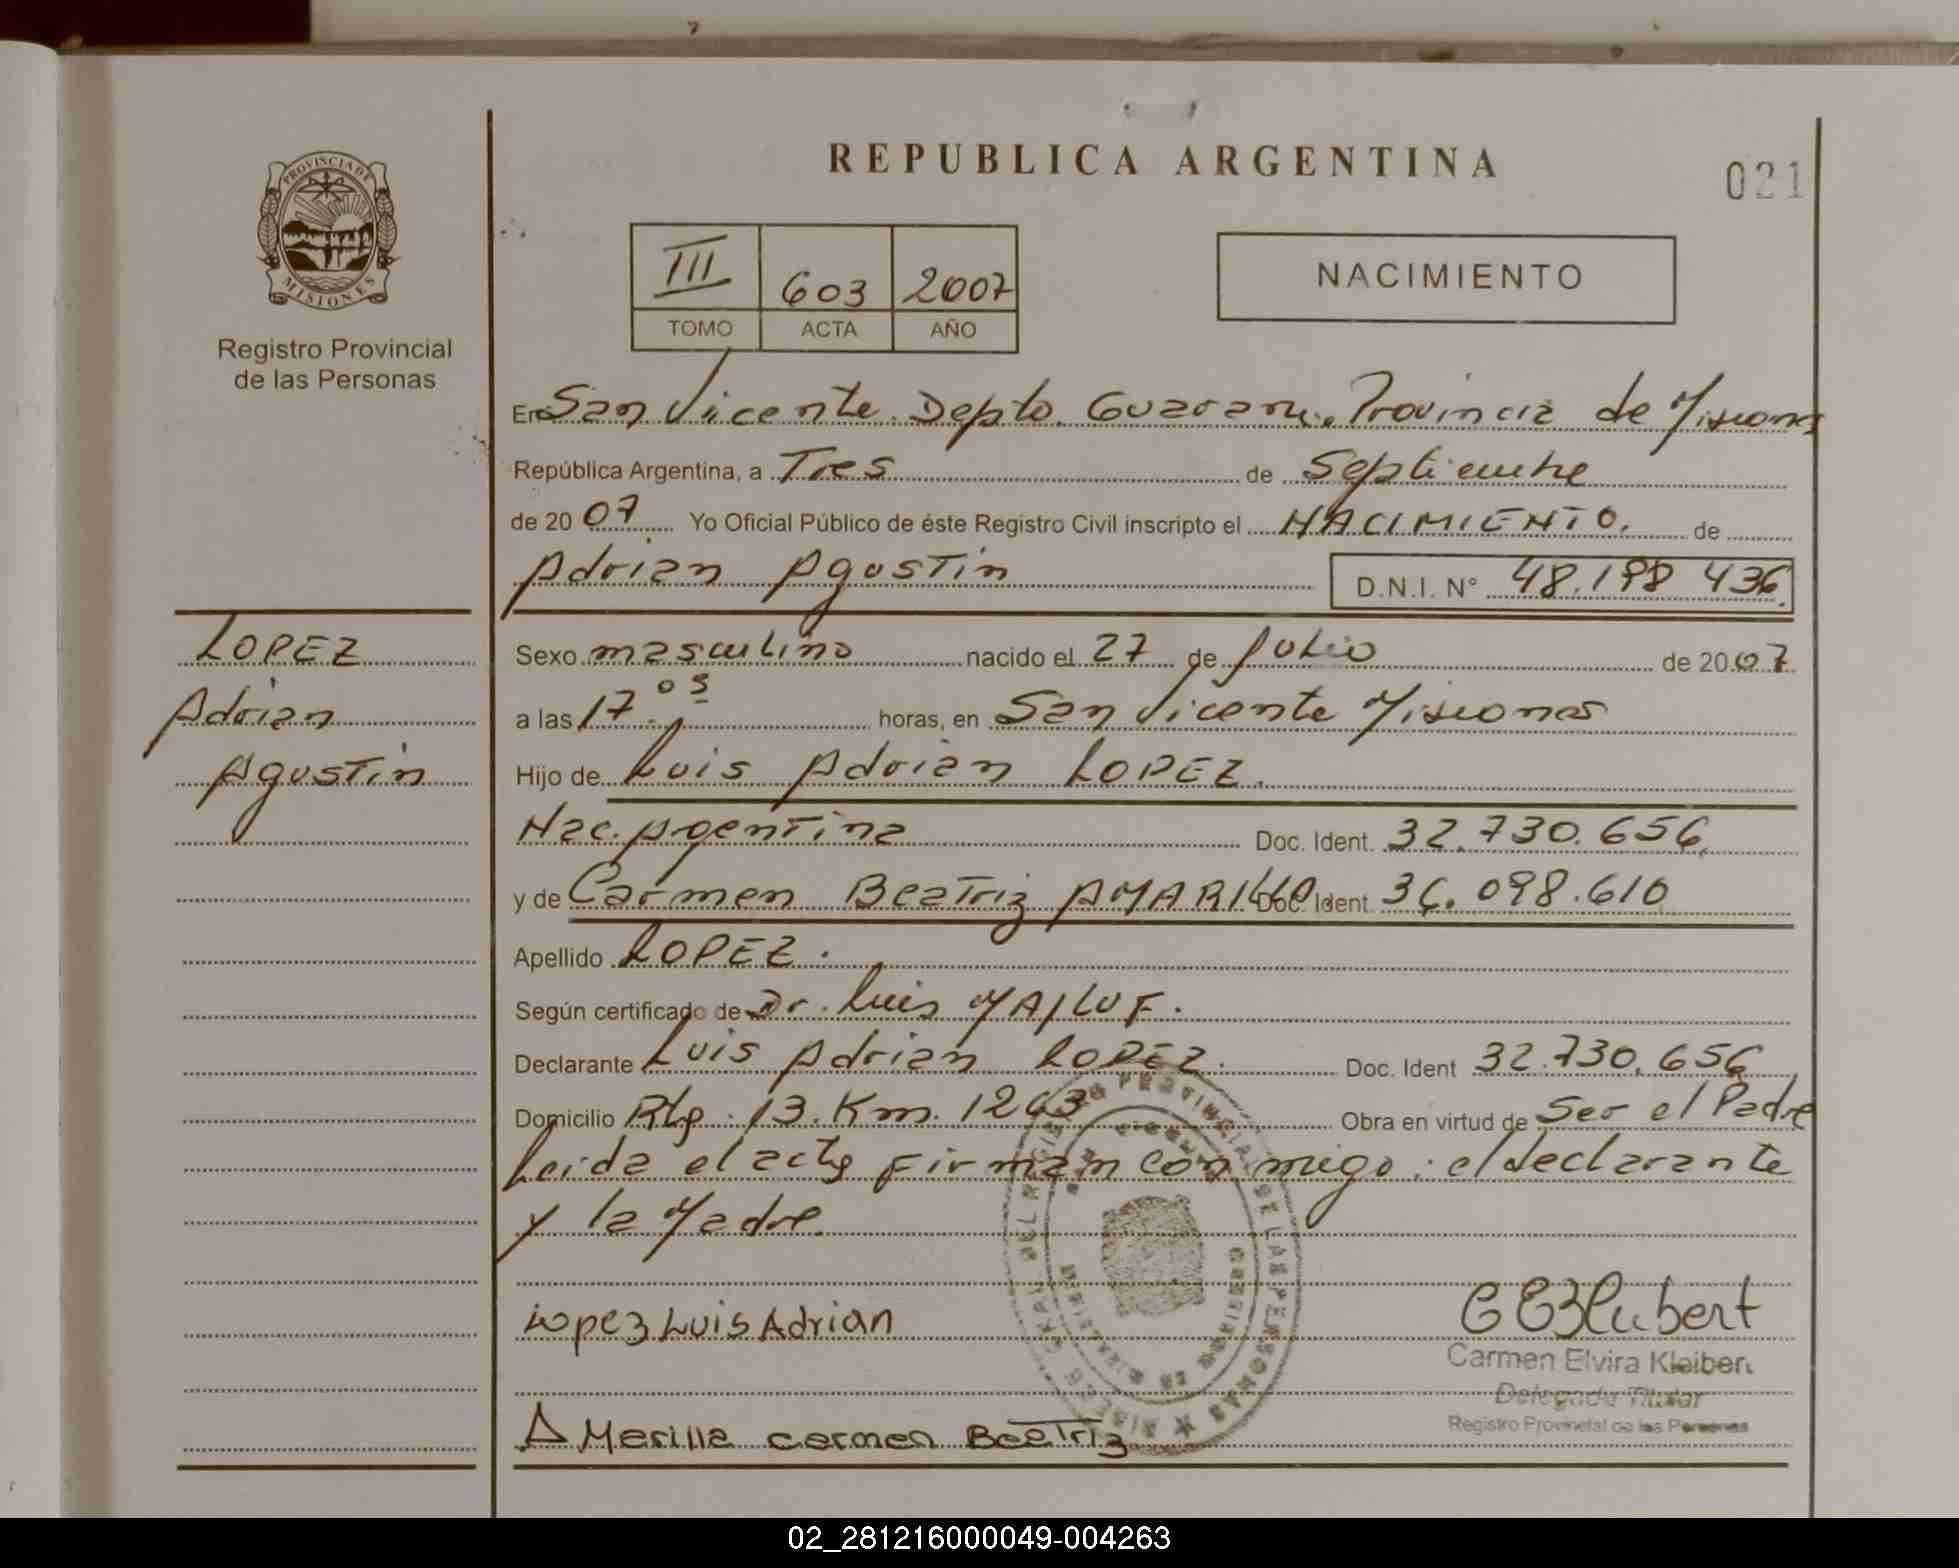 REPUBLICA ARGENTINA
021
PROVINCIA DE
MISIONES
Registro Provincial
de las Personas
III 603 2007
TOMO ACTA AÑO
NACIMIENTO
En San Vicente Depto. Guarani. Provincia de Misiones
República Argentina, a Tres de Septiembre
de 2007 Yo Oficial Público de éste Registro Civil inscripto el NACIMIENTO. de
Adrian Agustin D.N.I. N° 48.198 436.
LOPEZ
Adrian
Agustin
Sexo masculino nacido el 27 de Julio de 2007
a las 17.05 horas, en San Vicente Misiones
Hijo de Luis Adrian LOPEZ.
Nac. Argentina Doc. Ident. 32.730.656
y de Carmen Beatriz AMARILLO Doc. Ident. 36.098.610
Apellido LOPEZ.
Según certificado de Dr. Luis MAJLUF.
Declarante Luis Adrian LOPEZ. Doc. Ident 32.730.656
Domicilio Rta. 13. Km. 1263 Obra en virtud de Ser el Padre
Leida el acta Firman con migo: el declarante
y la Madre
REGISTRO PROVINCIAL DE LAS PERSONAS
Lopez Luis Adrian
Carmen Elvira Kleibert
Delegada Titular
Registro Provincial de las Personas
AMarilla Carmen Beatriz
02_281216000049-004263